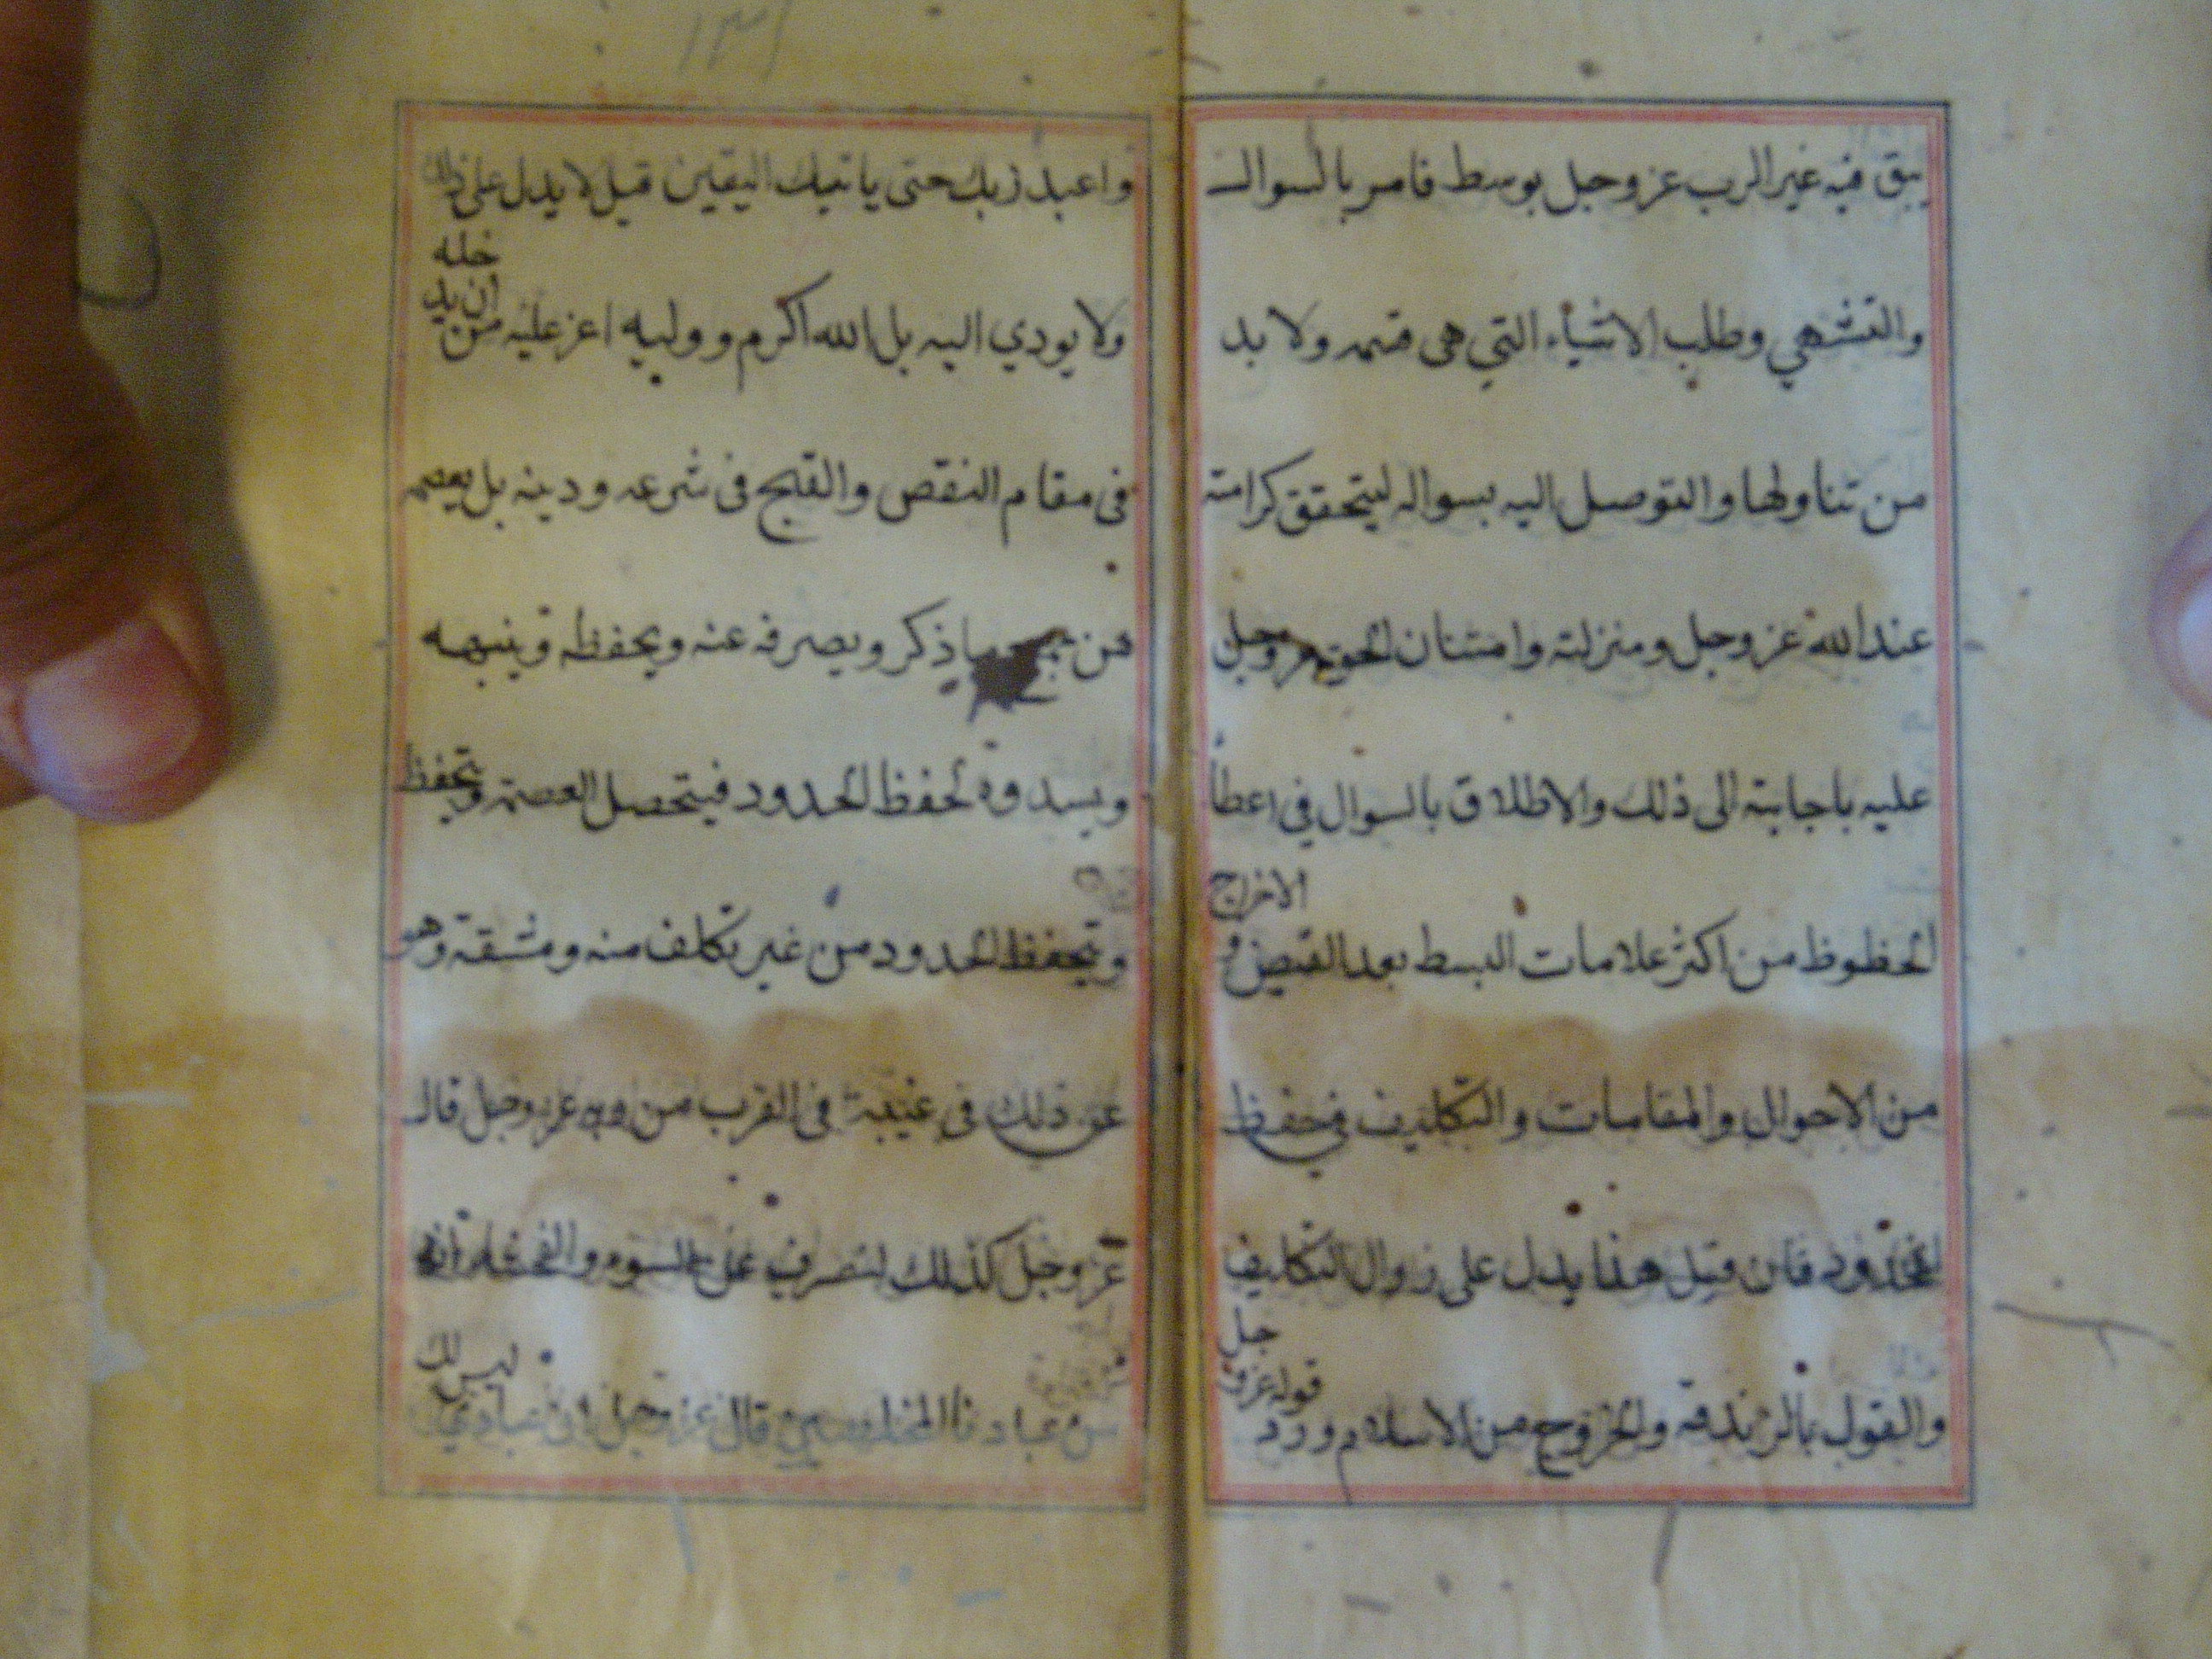 يبق فيه غير الرب عز وجل بوسط فامر بالسوال
والتشهي وطلب الاشياء التي هى قسمه ولا بد
من تناولها والتوصل اليه بسواله ليتحقق كرامته
عند الله عز وجل ومنزلته وامتنان الحق عز وجل
عليه باجابته الى ذلك والاطلاق بالسوال في اعطا
الحظوظ من اكثر علامات البسط بعد القبض و الاخراج
من الاحوال والمقامات والتكليف في حفظ
الحدود فان قيل هذا يدل على زوال التكليف
والقول بالزندقة والخروج من الاسلام ورد قوله عز و جل
١٣١
واعبد ربك حتى ياتيك اليقين قيل لا يدل على ذلك
ولا يودي اليه بل الله اكرم ووليه اعز عليه من ان يد خله
فى مقام النقص والقبح فى شرعه ودينه بل يعصمه
من ما ذكر ويصرفه عنه ويحفظه وينبهه
ويسدده لحفظ الحدود فيتحصل العصمة ويتحفظ
ويتحفظ الحدود من غير تكلف منه ومشقة وهو
عن ذلك فى غيبة فى القرب من ربه عز وجل قال
عز وجل كذلك لنصرف عنه السوء والفحشاء انه
من عبادنا المخلصين قال عز وجل ان عبادي ليس لك